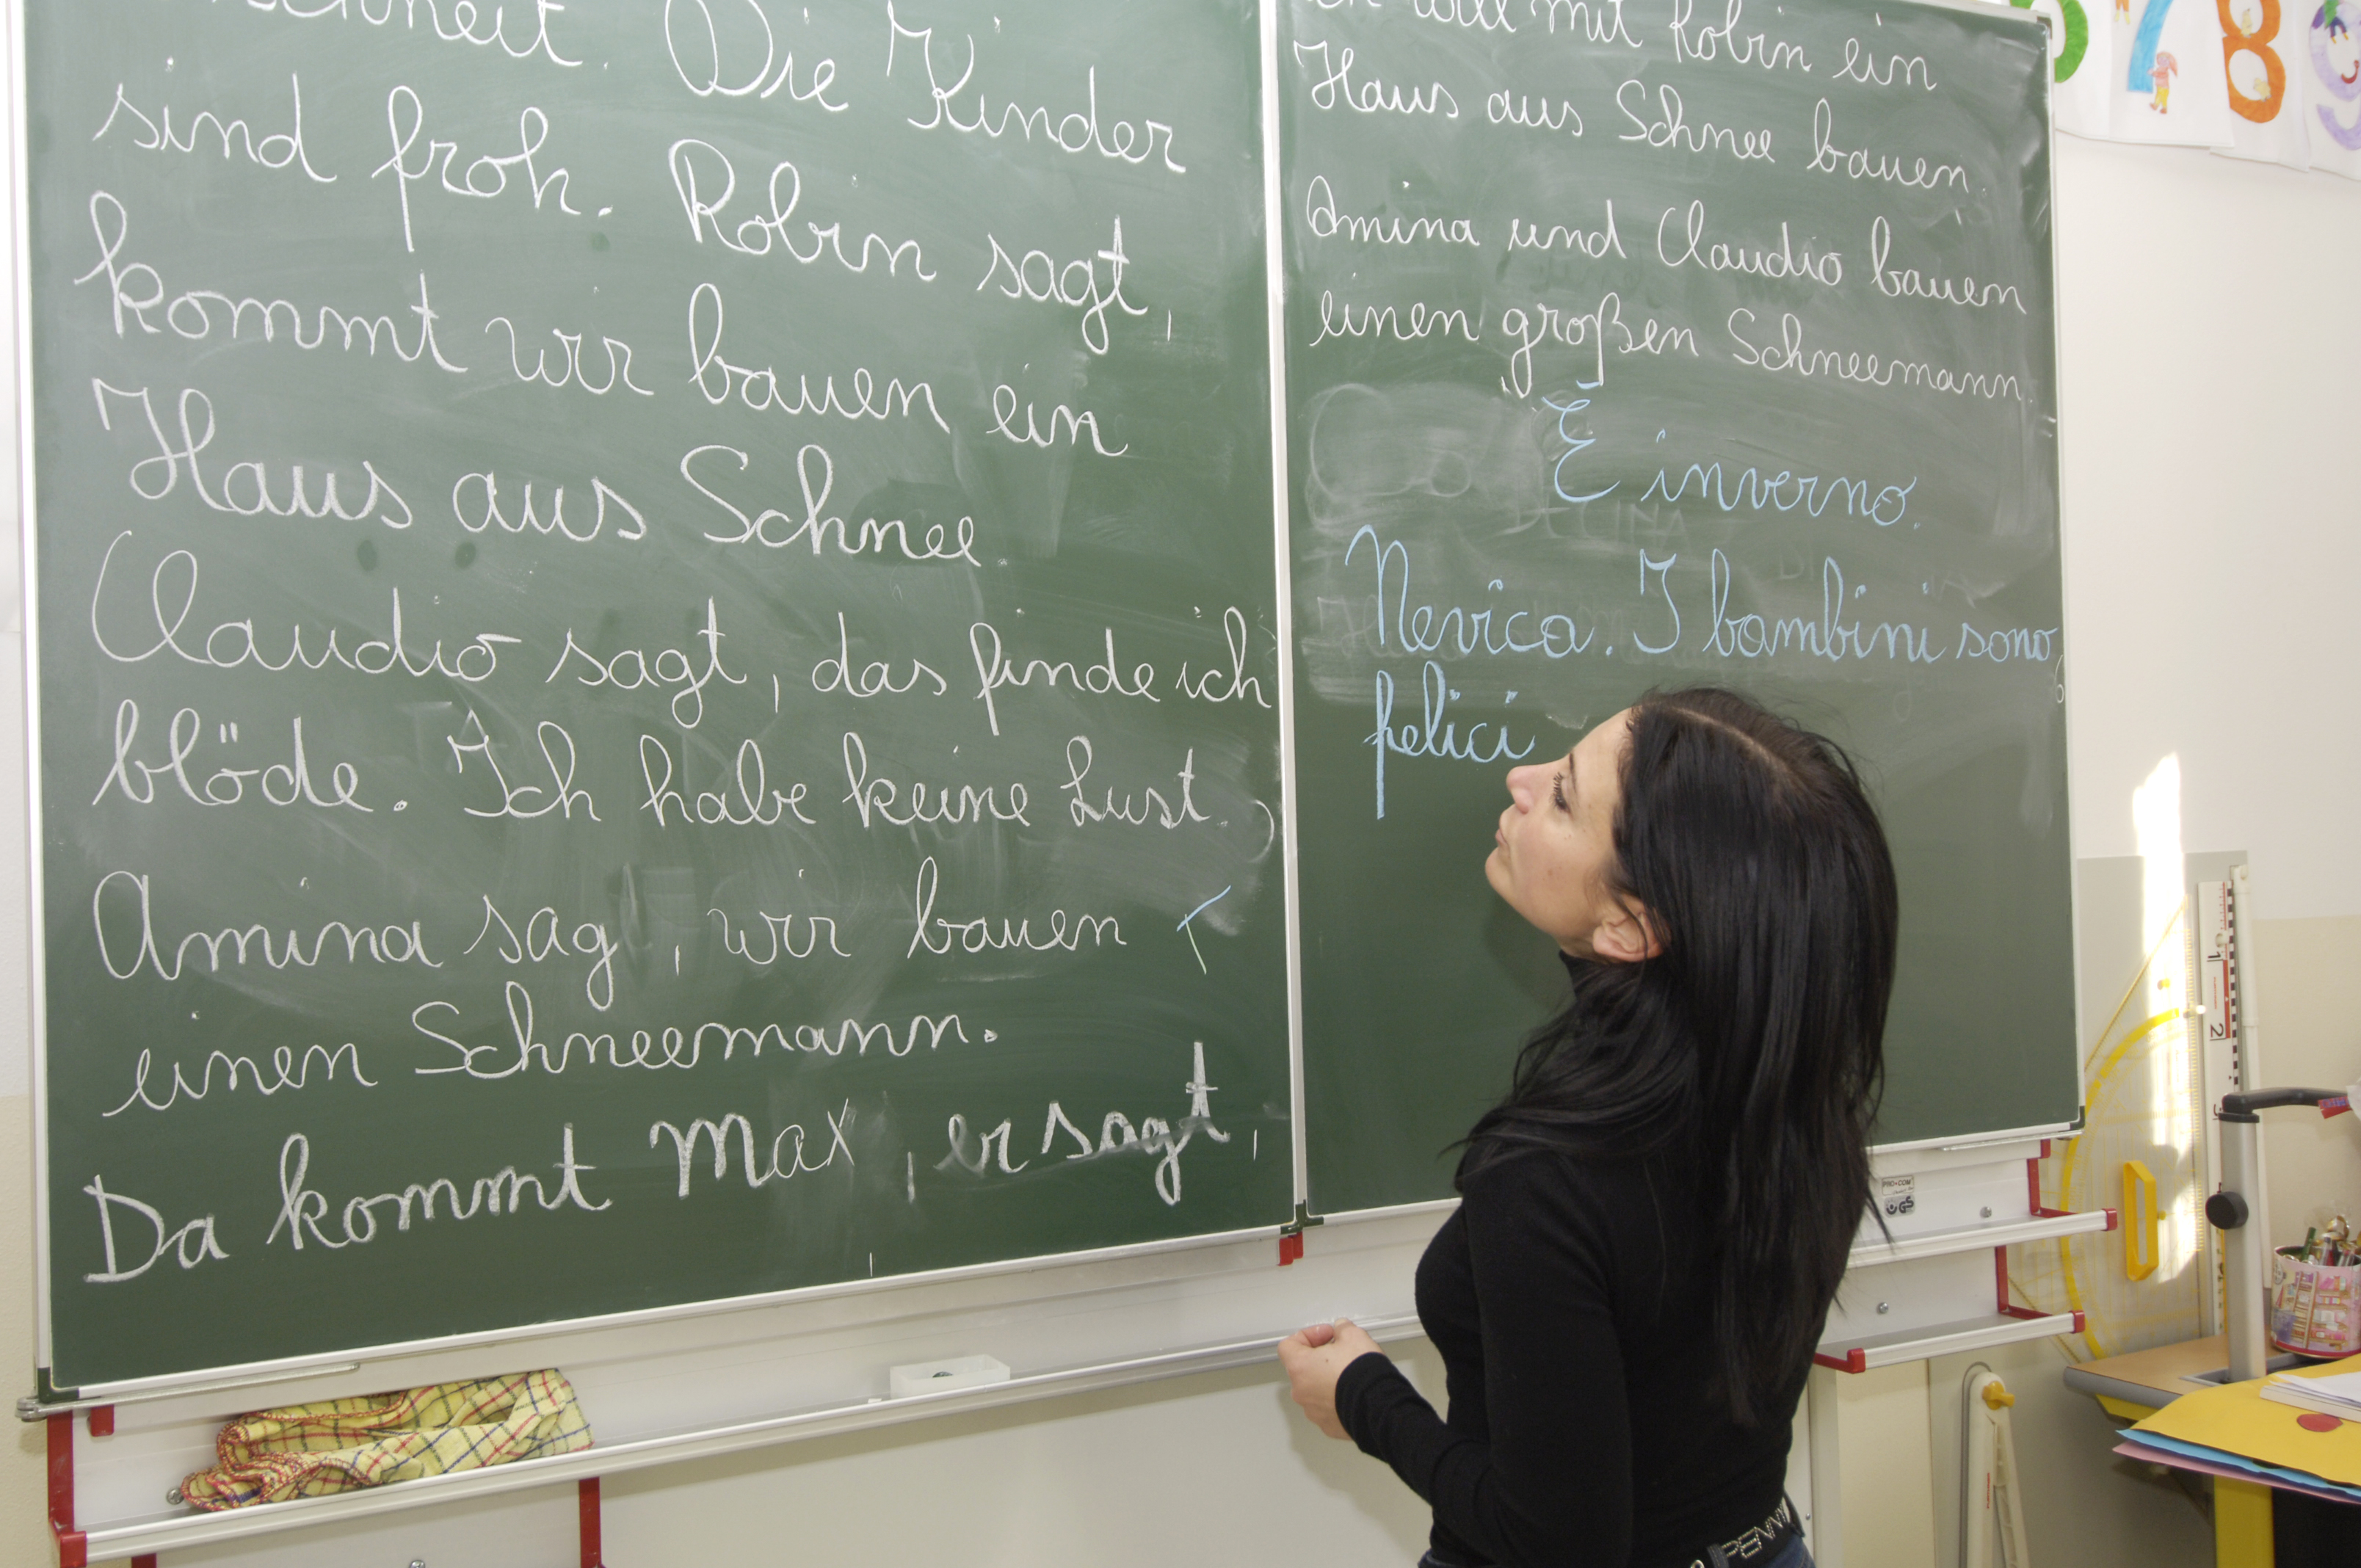 schneit. Die Kinder
sind froh. Robin sagt,
kommt wir bauen ein
Haus aus Schnee
Claudio sagt, das finde ich
blöde. Ich habe keine Lust.
Amina sag , wir bauen
einen Schneemann.
Da kommt Max, er sagt,
ich will mit Robin ein
Haus aus Schnee bauen.
Amina und Claudio bauen
einen großen Schneemann.
È inverno.
Nevica. I bambini sono
felici
7 8 9
1
2
PRO-COM
GS